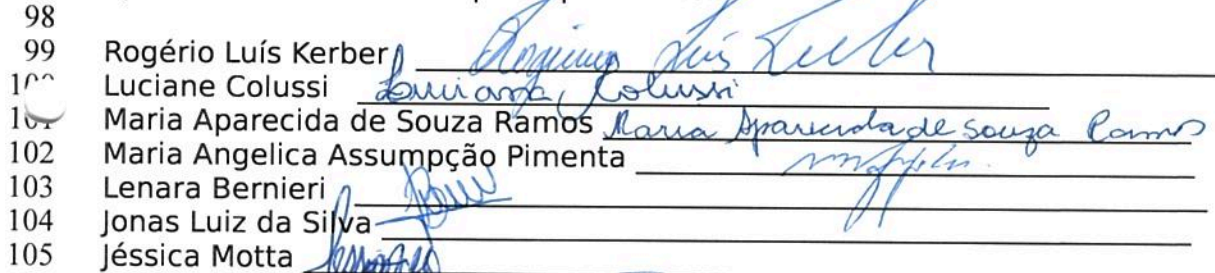 98
99 Rogério Luís Kerber Rogério Luís Kerber
Luciane Colussi Luciana Colussi
101 Maria Aparecida de Souza Ramos Maria Aparecida de Souza Ramos
102 Maria Angelica Assumpção Pimenta
103 Lenara Bernieri
104 Jonas Luiz da Silva
105 Jéssica Motta